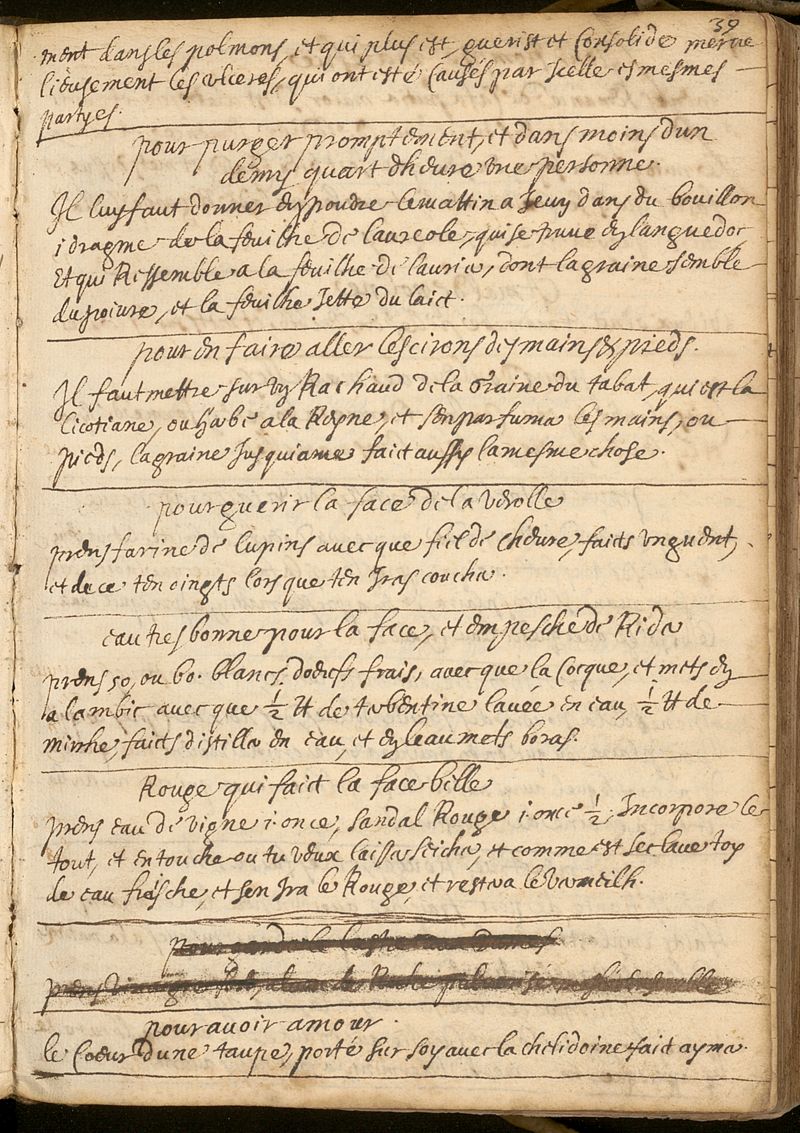 39
ment dans les polmons, et qui plus est, guerist et Consolide merue
lieusement les vlceres, qui ont esté Causés par Icelle es mesmes
partyes.
pour purger promptement, et dans moins dun
demy quart dheure vne personne.
Il luy faut donner en poudre le mattin a Jeun dans du bouillon
1 dragme de la feuilhe de laureole, qui se truue en languedoc
Et qui Ressemble a la feuilhe de laurier, dont la graine semble
du poiure, et la feuilhe Jette du laict.
pour en faire aller les cirons des mains & pieds.
Il faut mettre sur un Rachaud de la Graine du tabat, qui est la
licotiane, ou herbe a la Royne, et sen parfumer les mains, ou
pieds, la graine Jusquiame faict aussy la mesme chose.
pour guerir la face de la verolle
prens farine de lupins auecque fiel de cheure, faits vnguent,
et de ce ten oingts lors que ten Iras coucher.
eau tres bonne pour la face, et empesche de Rider
prens 50, ou 60. blancs doeufs frais, auecque la Cocque, et mets en
alambic auecque ½ ℔ de terbentine lauée en eau, ½ ℔ de
mirrhe, faits distiller en eau, et en leau mets boras.
Rouge qui faict la face belle
prens eau de vigne 1. once, sandal Rouge 1. once ½, Incorpore le
tout, et en touche ou tu veux laisser seicher, et comme est sec laue toy
de eau fresche, et sen Ira le Rouge, et restera le Vermeilh.
pour auoir amour.
le Coeur dune taupe, porté sur soy auec la chelidoine faict aymer.